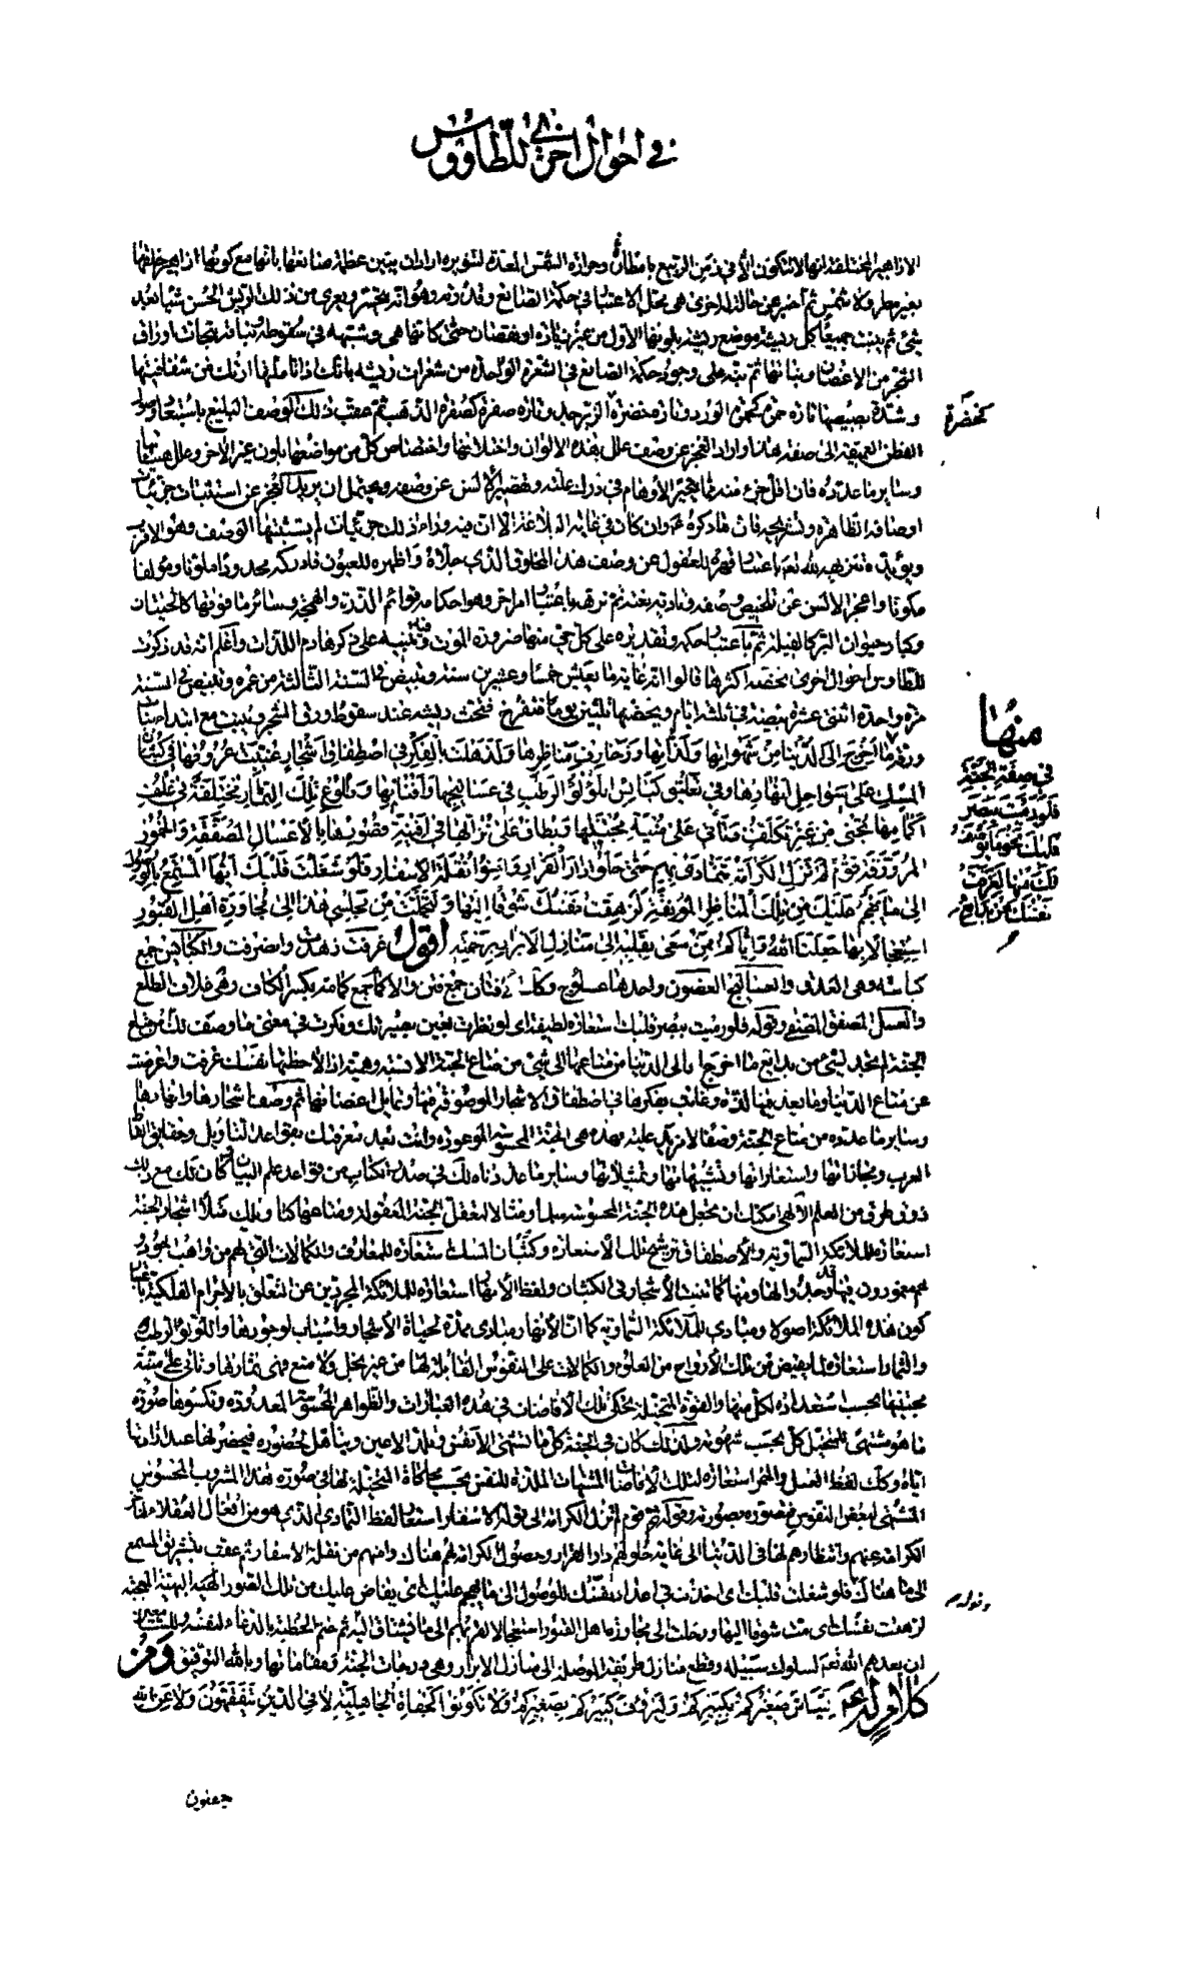 في احوال اخرى للطاووس
الازاهير المختلفة انها لا تتكون الا في زمن الربيع بامطاره وحرارة الشمس المعدة لتنويره اراد ان يبين عظمة صانعها بانها مع كونها ازاهير خلقها
بغير مطر ولا شمس ثم اخبر عن حالة له اخرى هي محل الاعتبار في حكمة الصانع وقدرته وهو انه يتحسر ويعرى من ذلك الريش الحسن شيئا بعد
شئ ثم ينبت جميعا كل ريشة موضع ريشة بلونها الاول من غير زيادة او نقصان حتى كانها هي وشبهه في سقوطه ونباته بتحات اوراق
الشجر من الاغصان ونباتها ثم نبه على وجود حكمة الصانع في الشعرة الواحدة من شعرات ريشه بانك اذا تاملتها ارتك من شفافيتها
وشدة بصيصها تارة حمرة كحمرة الورد وتارة خضرة الزبرجد وتارة صفرة كصفرة الذهب ثم عقب ذلك الوصف البليغ باستبعاد وصول
كخضرة
الفطن العميقة الى صفة هذا واراد العجز عن وصف علل هذه الالوان واختلافها واختصاص كل من مواضعها بلون غير الاخر وعلل هيئاتها
وساير ما عدده فان اقل جزء منه مما يتحير الاوهام في درك علته وتقصير الالسن عن وصفه ويحتمل ان يريد العجز عن استثبات جزئيات
اوصافه الظاهرة وتشريحه فان ما ذكره ع وان كان في غاية البلاغة الا ان فيه وراء ذلك جزئيات لم يستثبتها الوصف وهو الاقرب
ويؤيده تنزيهه لله تعم باعتبار قهره للعقول عن وصف هذا المخلوق الذي جلاه واظهره للعيون فادركته محدودا ملونا ومؤلفا
مكونا واعجز الالسن عن تلخيص وصفه وتادية نعته ثم نزهه باعتبار امر اخر وهو احكامه قوائم الذرة والهمجة وسائر ما فوقها كالحيتان
وكبار حيوان البر كالفيلة ثم باعتبار حكمه وتقديره على كل حي منها ضرورة الموت وفيه تنبيه على ذكر هادم اللذات واعلم انه قد ذكرت
للطاوس احوال اخرى تخصه اكثرها قالوا انه غاية ما يعيش خمسا وعشرين سنة وتبيض في السنة الثالثة من عمره وتبيض في السنة
مرة واحدة اثنتي عشرة بيضة في ثلثة ايام ويحضنها ثلثين يوما فتفرخ وتحت ريشه عند سقوط ورق الشجر وينبت مع ابتداء نبات
منها
في صفة الجنة
فلو رميت ببصر
قلبك نحو ما يوصف
لك منها لعزفت
نفسك عن بدايع
ورق ما اخرج الى الدنيا من شهواتها ولذاتها وزخارف مناظرها ولذهلت بالفكر في اصطفاق اشجار غيبت عروقها في كثبان
المسك على سواحل انهارها وفي تعليق كبائس اللؤلؤ الرطب في عساليجها وافنانها وطلوع تلك الثمار مختلفة في غلف
اكمامها تجنى من غير تكلف فتاتي على منية مجتنيها ويطاف على نزالها في افنية قصورها بالاعسال المصفقة والخمور
المروقة قوم لم تزل الكرامة تتمادى بهم حتى حلوا دار القرار وامنوا نقلة الاسفار فلو شغلت قلبك ايها المستمع بالوصول
الى ما يهجم عليك من تلك المناظر المونقة لزهقت نفسك شوقا اليها ولتحملت من مجلسي هذا الى مجاورة اهل القبور
استعجالا بها جعلنا الله واياكم ممن سعى بقلبه الى منازل الابرار برحمته اقول عزفت زهدت وانصرفت والكبائس جمع
كباسة وهي العذق والعساليج الغصون واحدها عسلوج وكذلك الافنان جمع فنن والاكمام جمع كمامة بكسر الكاف وهي غلاف الطلع
والعسل المصفق المصفى وقوله فلو رميت ببصر قلبك استعارة لطيفة اي لو نظرت بعين بصيرتك وفكرت في معنى ما وصف لك من متاع
الجنة لم تجد لشئ من بدايع ما اخرج الى الدنيا من متاعها الى شئ من متاع الجنة الا نسبة وهمية اذا لاحظها نفسك عزفت واعرضت
عن متاع الدنيا وما يعد فيها لذة وغابت بفكرها في اصطفاق الاشجار الموصوفة فيها وتمايل اغصانها ثم وصف اشجارها وانهارها
وساير ما عدده من متاع الجنة وصفا لا مزيد عليه فهذه هي الجنة المحسوسة الموعودة وانت بعد معرفتك بقواعد التاويل وحقايق الفاظ
العرب ومجازاتها واستعاراتها وتشبيهاتها وتمثيلاتها وساير ما عددناه لك في صدر الكتاب من قواعد علم البيان وكان لك مع ذلك
ذوق طرف من العلم الالهي امكنك ان تجعل هذه الجنة المحسوسة سلما ومثالا لتعقل الجنة المعقولة ومتاعها كتاويلك مثلا اشجار الجنة
استعارة للملائكة السماوية والاصطفاق ترشيح تلك الاستعارة وكثبان المسك استعارة للمعارف والكمالات التي لهم من واهب الجود و
هم مغمورون فيها وقد وجدوا لها ومنها كما تنبت الاشجار في الكثبان ولفظ الانهار استعارة للملائكة المجردين عن التعلق بالاجرام الفلكية باعتبار
كون هذه الملائكة اصولا ومبادي للملائكة السماوية كما ان الانهار مبادي ممدة لحياة الاشجار واسباب لوجودها واللؤلؤ الرطب
والثمار استعارة لما يفيض من تلك الارواح من العلوم والكمالات على النفوس القابلة لها من غير بخل ولا منع فهي ثمارها وتاتي على منية
مجتنيها بحسب استعداده لكل منها والقوة المتخيلة تحكي تلك الافاضات في هذه العبارات والظواهر المحسوسة المعدودة وتكسوها صورة
ما هو مشتهى للمتخيل كل بحسب شهوته ولذلك كان في الجنة كل ما تشتهي الانفس وتلذ الاعين ويتاهل لحضوره فيحضر لها عند ارادتها
اياه وكذلك لفظ العسل والخمر استعارة لتلك الافاضات المشتهيات الملذة للنفس بحسب محاكاة المتخيلة لها في صورة هذا المشروب المحسوس
المشتهى لبعض النفوس فيتصوره بصورته وقوله ثم قوم لم تزل الكرامة الى قوله الاسفار استعار لفظ التمادي الذي هو من افعال العقلاء لتاخر
الكرامة عنهم وانتظارهم لها في الدنيا الى غاية حلولهم دار القرار وحصول الكرامة لهم هناك وامنهم من نقلة الاسفار ثم عقب بتشويق المستمع
الى ما هناك وقوله فلو شغلت قلبك اي اخذت في اعداد نفسك للوصول الى ما يهجم عليك اي يفاض عليك من تلك الصور البهية المعجبة
وقوله
لزهقت نفسك اي مت شوقا اليها ورحلت الى مجاورة اهل القبور استعجالا لقربهم الى ما يشتاق اليه ثم ختم الخطبة بالدعاء لنفسه وللمستمعين
ان يعدهم الله تعم لسلوك سبيله وقطع منازل طريقه الموصلة الى منازل الابرار وهي درجات الجنة ومقاماتها وبالله التوفيق ومن
كلام له ع ليتاس صغيركم بكبيركم وليرؤف كبيركم بصغيركم ولا تكونوا كجفاة الجاهلية لا في الدين تتفقهون ولا عن الله
تعقلون